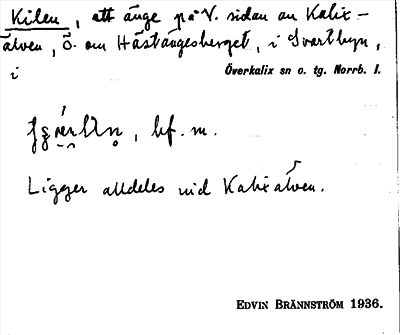 Kilen, ett änge på V. sidan av Kalix-
älven, Ö. om Hästängesberget, i Svartbyn,
i Överkalix sn o. tg. Norrb. l.
, bf. m.
Ligger alldeles vid Kalixälven.
EDVIN BRÄNNSTRÖM 1936.